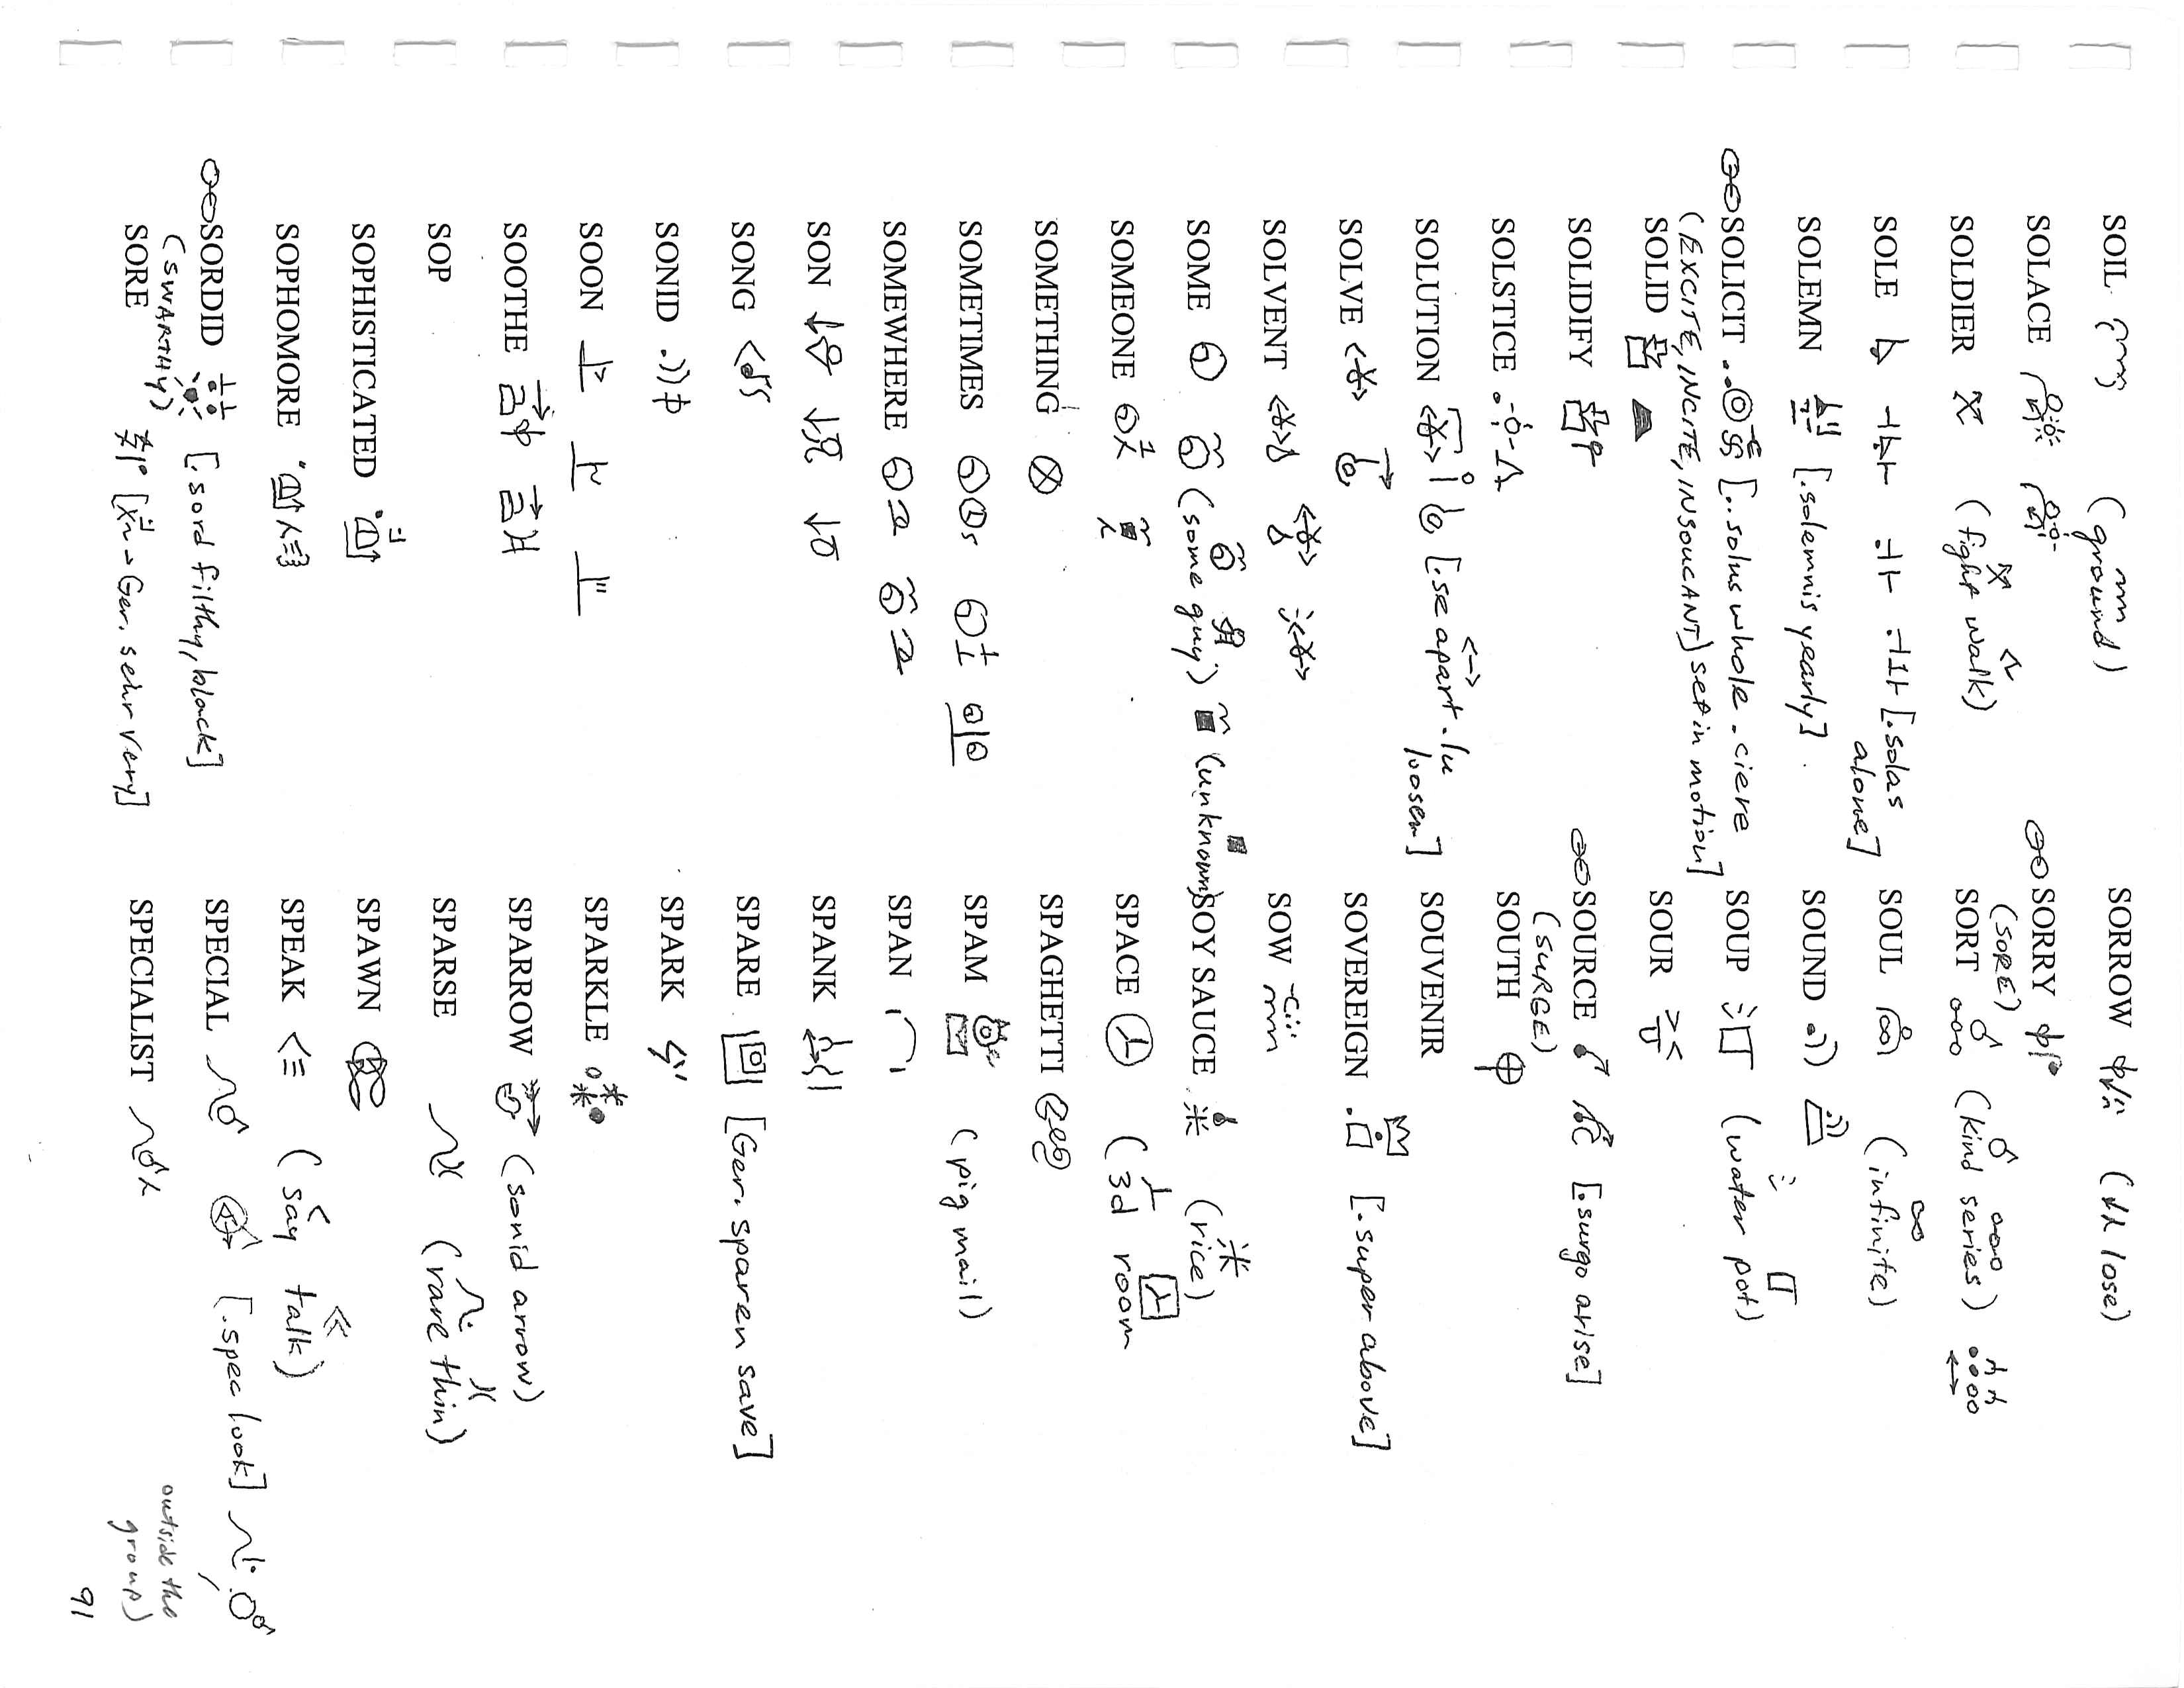 SOIL (ground)
SOLACE
SOLDIER (fight walk)
SOLE [.solas
alone]
SOLEMN [.solemnis yearly]
SOLICIT [..solus whole .ciere
(EXCITE, INCITE, INSOUCANT) set in motion]
SOLID
SOLIDIFY
SOLSTICE
SOLUTION [.se apart .lu
loosen]
SOLVE
SOLVENT
SOME (some guy) (unknown)
SOMEONE
SOMETHING
SOMETIMES
SOMEWHERE
SON
SONG
SONID
SOON
SOOTHE
SOP
SOPHISTICATED
SOPHOMORE
SORDID [.sord filthy, black]
(SWARTHY)
SORE [→ Ger. sehr very]
SORROW (lose)
SORRY
(SORE)
SORT (kind series)
SOUL (infinite)
SOUND
SOUP (water pot)
SOUR
SOURCE [.surgo arise]
(SURGE)
SOUTH
SOUVENIR
SOVEREIGN [.super above]
SOW
SOY SAUCE 米 (rice) 米
SPACE (3d room
SPAGHETTI
SPAM (pig mail)
SPAN
SPANK
SPARE [Ger. sparen save]
SPARK
SPARKLE
SPARROW (sonid arrow)
SPARSE (rare thin)
SPAWN
SPEAK (say talk)
SPECIAL [.spec look]
SPECIALIST
outside the
group)
91